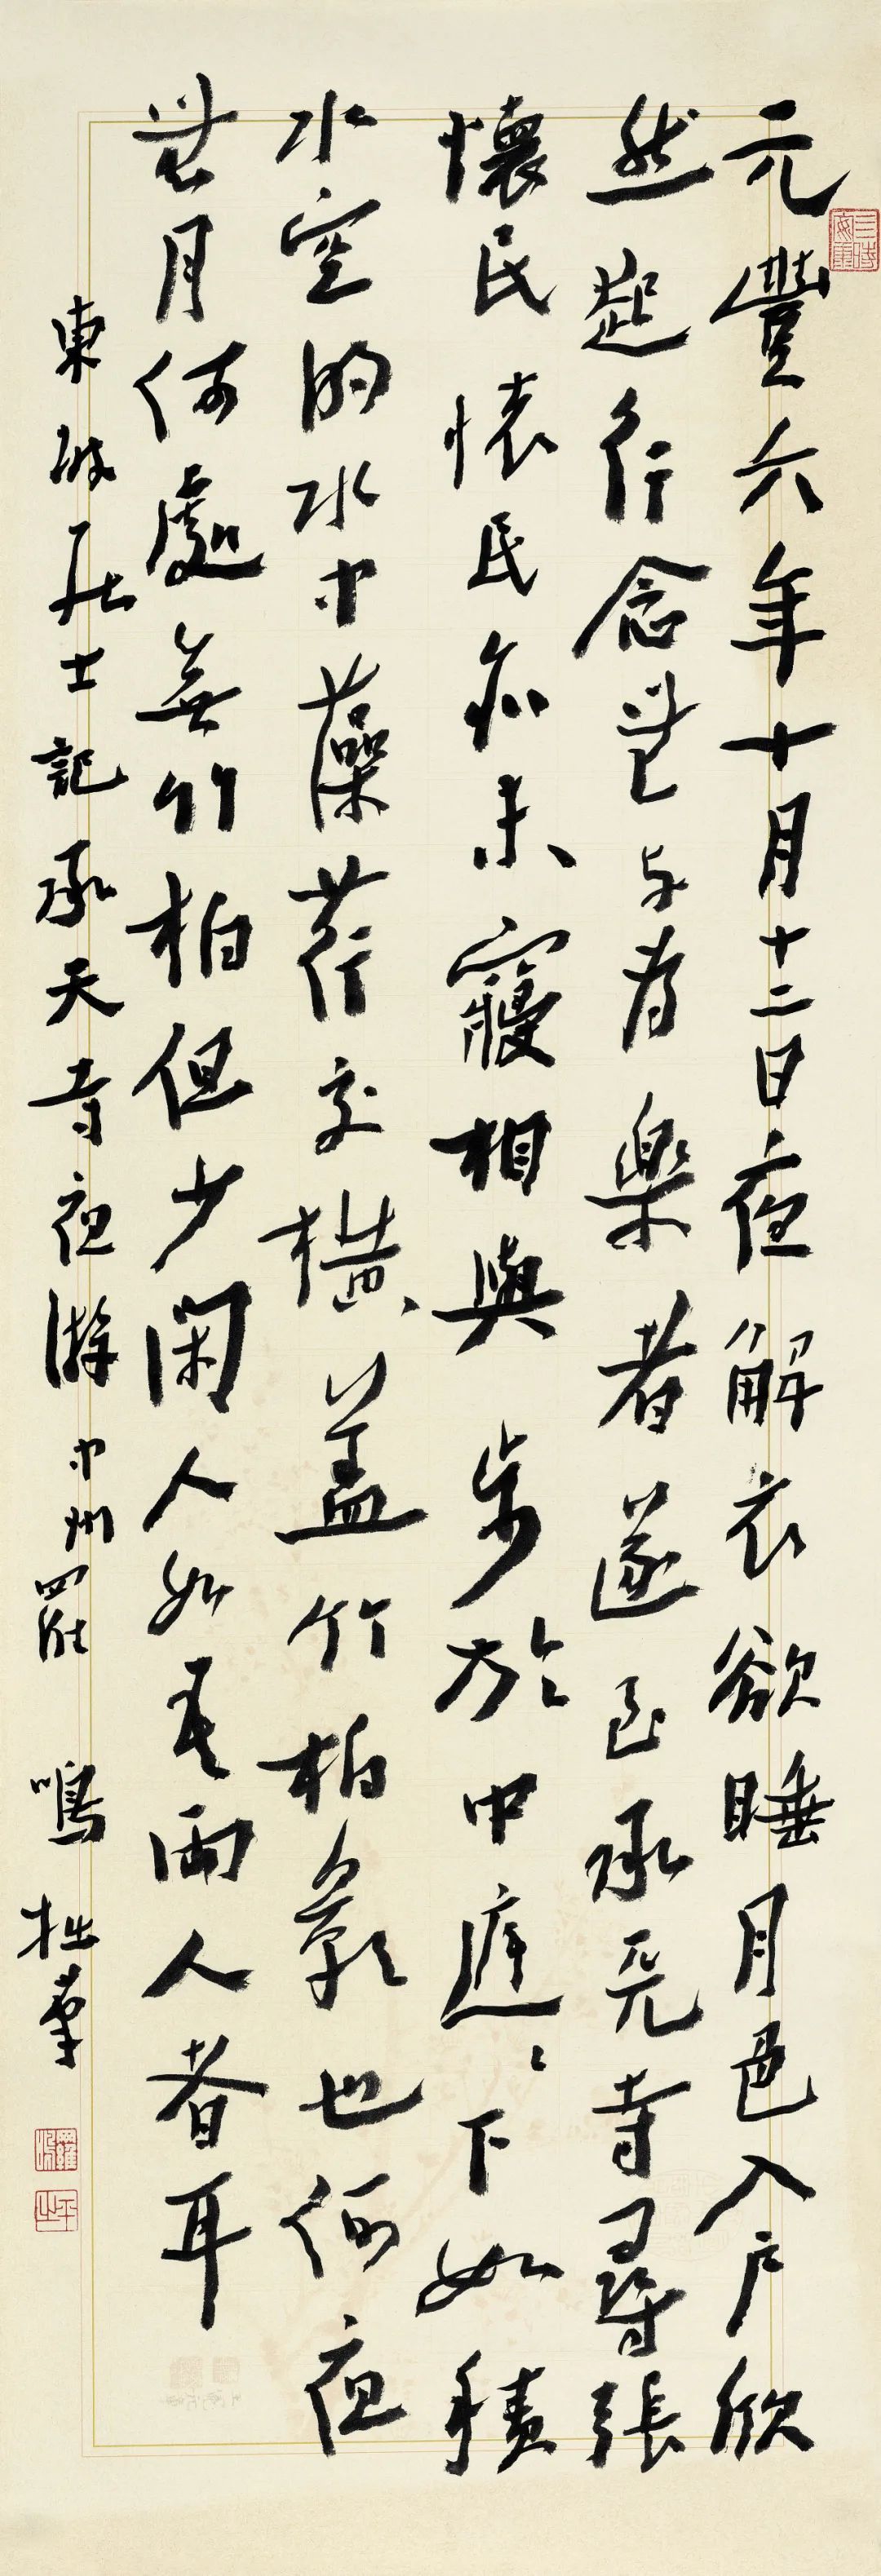 元豐六年十月十二日夜解衣欲睡月色入户欣
然起行念無与為樂者遂至承天寺尋張
懷民懷民亦未寢相與步於中庭〻下如積
水空明水中藻荇交橫蓋竹柏影也何夜
無月何處無竹柏但少閑人如吾兩人者耳
東坡居士記承天寺夜游 中州羅鳴拙筆